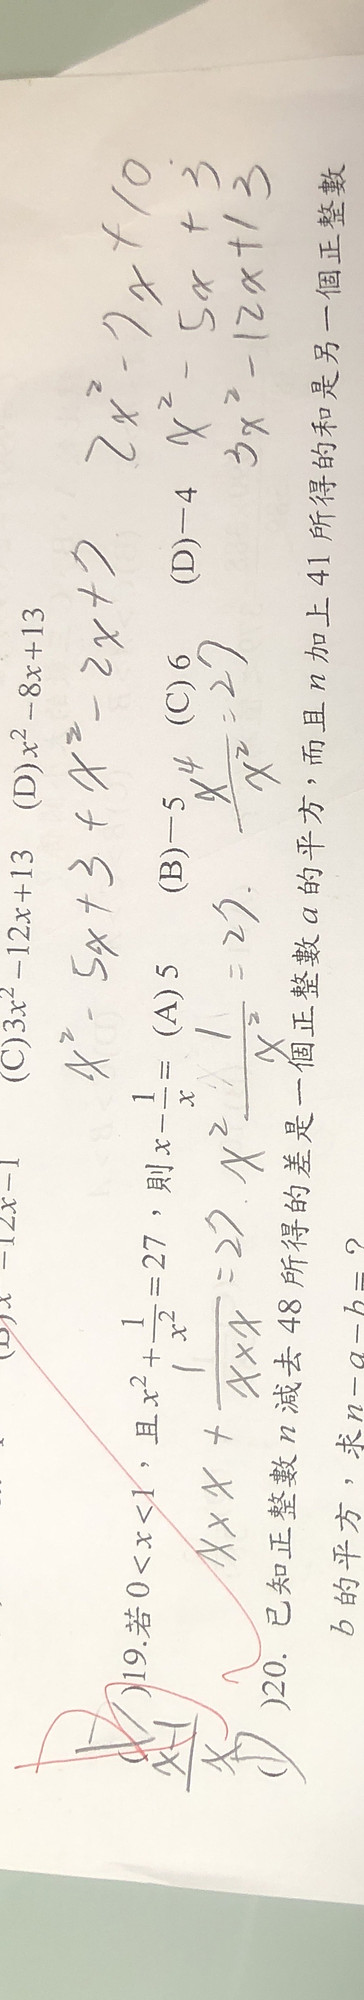 (C)3x²−12x+13 (D)x²−8x+13
x² - 5x + 3 + x² - 2x + 7
2x² - 7x + 10
x² - 5x + 3
3x² - 12x + 13
)19.若0<x<1，且x²+1/x²=27，則x−1/x= (A)5 (B)−5 (C)6 (D)−4
x×x + 1/x×x = 27. x² 1/x² = 27. x⁴/x² = 27
( )20. 已知正整數n減去48所得的差是一個正整數a的平方，而且n加上41所得的和是另一個正整數
b的平方，求n−a−b=？